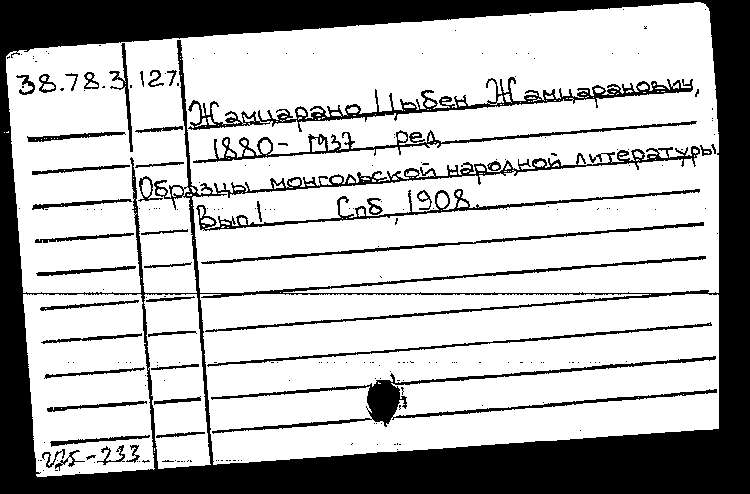 38.78.3.127.
Жамцарано, Цыбен Жамцаранович,
1880-1937, ред.
Образцы монгольской народной литературы
Вып. 1 Спб, 1908.
225-233